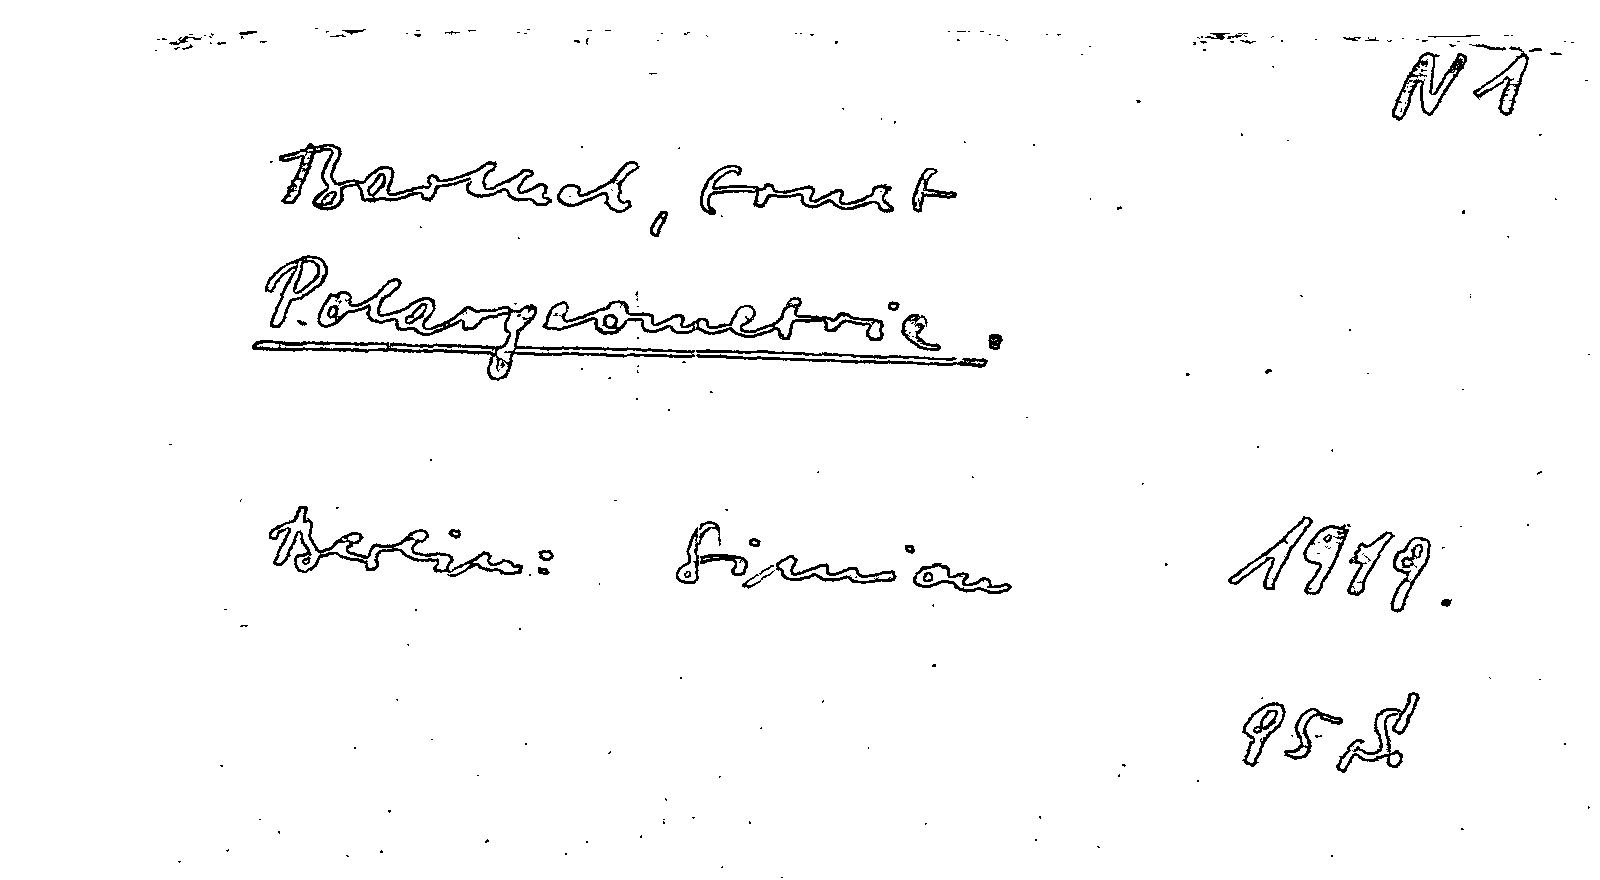 N 1
Barthel, Ernst
Polargeometrie.
Berlin: Simion 1919.
95 S.